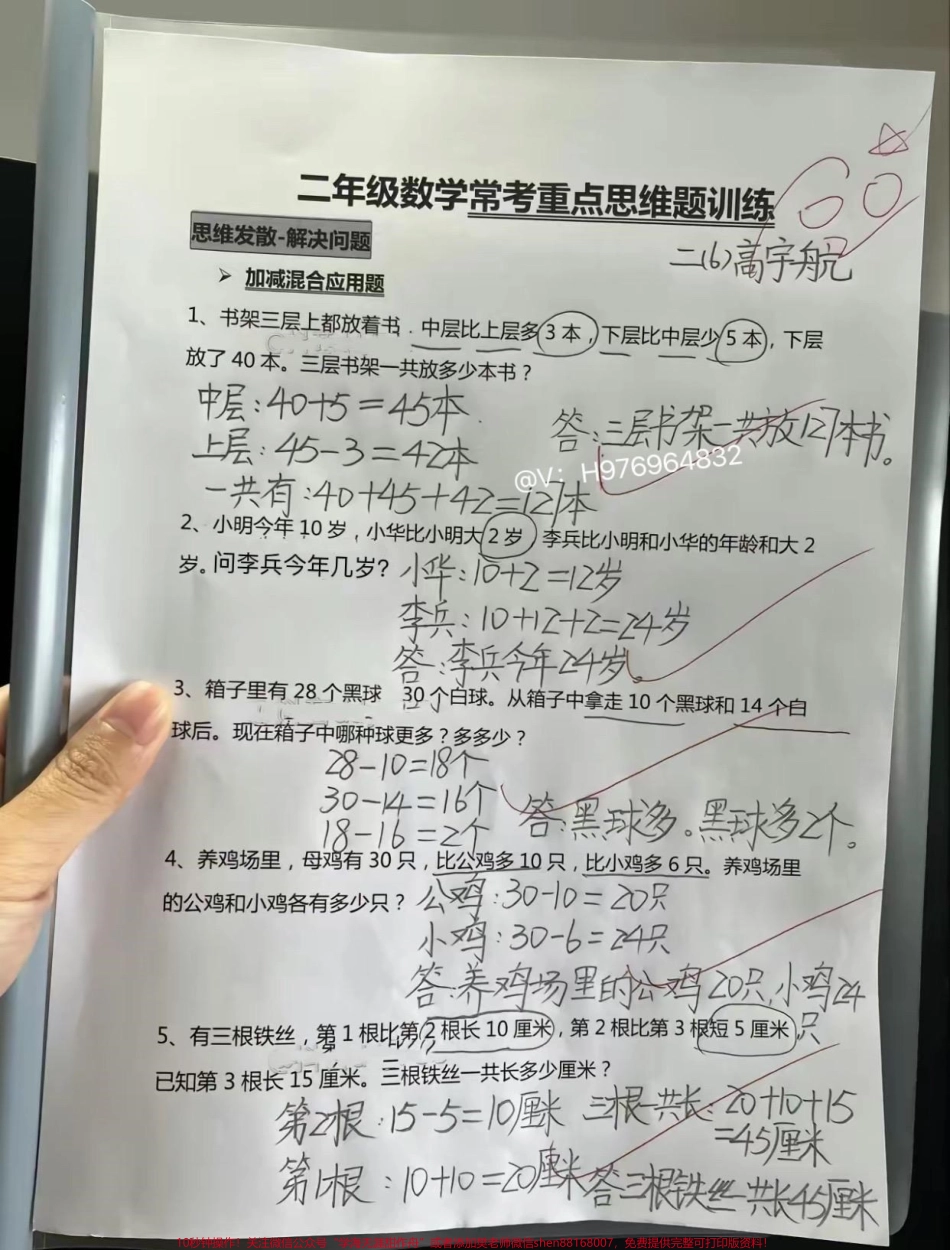 60
二年级数学常考重点思维题训练
思维发散-解决问题
二(6)高宇航
➢ 加减混合应用题
1、书架三层上都放着书．中层比上层多3本，下层比中层少5本，下层
放了40本。三层书架一共放多少本书？
中层：40+5=45本.
答：三层书架一共放127本书。
上层：45-3=42本
@V：H976964832
一共有：40+45+42=127本
2、小明今年10岁，小华比小明大2岁 李兵比小明和小华的年龄和大2
岁。问李兵今年几岁？
小华：10+2=12岁
李兵：10+12+2=24岁
答：李兵今年24岁。
3、箱子里有28个黑球 30个白球。从箱子中拿走10个黑球和14个白
球后。现在箱子中哪种球更多？多多少？
28-10=18个
30-14=16个
答：黑球多。黑球多2个。
18-16=2个
4、养鸡场里，母鸡有30只，比公鸡多10只，比小鸡多6只。养鸡场里
的公鸡和小鸡各有多少只？
公鸡：30-10=20只
小鸡：30-6=24只
答：养鸡场里的公鸡20只，小鸡24
只
5、有三根铁丝，第1根比第2根长10厘米，第2根比第3根短5厘米，
已知第3根长15厘米。三根铁丝一共长多少厘米？
第2根：15-5=10厘米
三根一共长：20+10+15
=45厘米
第1根：10+10=20厘米
答三根铁丝一共长45厘米
shen88168007，免费提供完整可打印版资料！